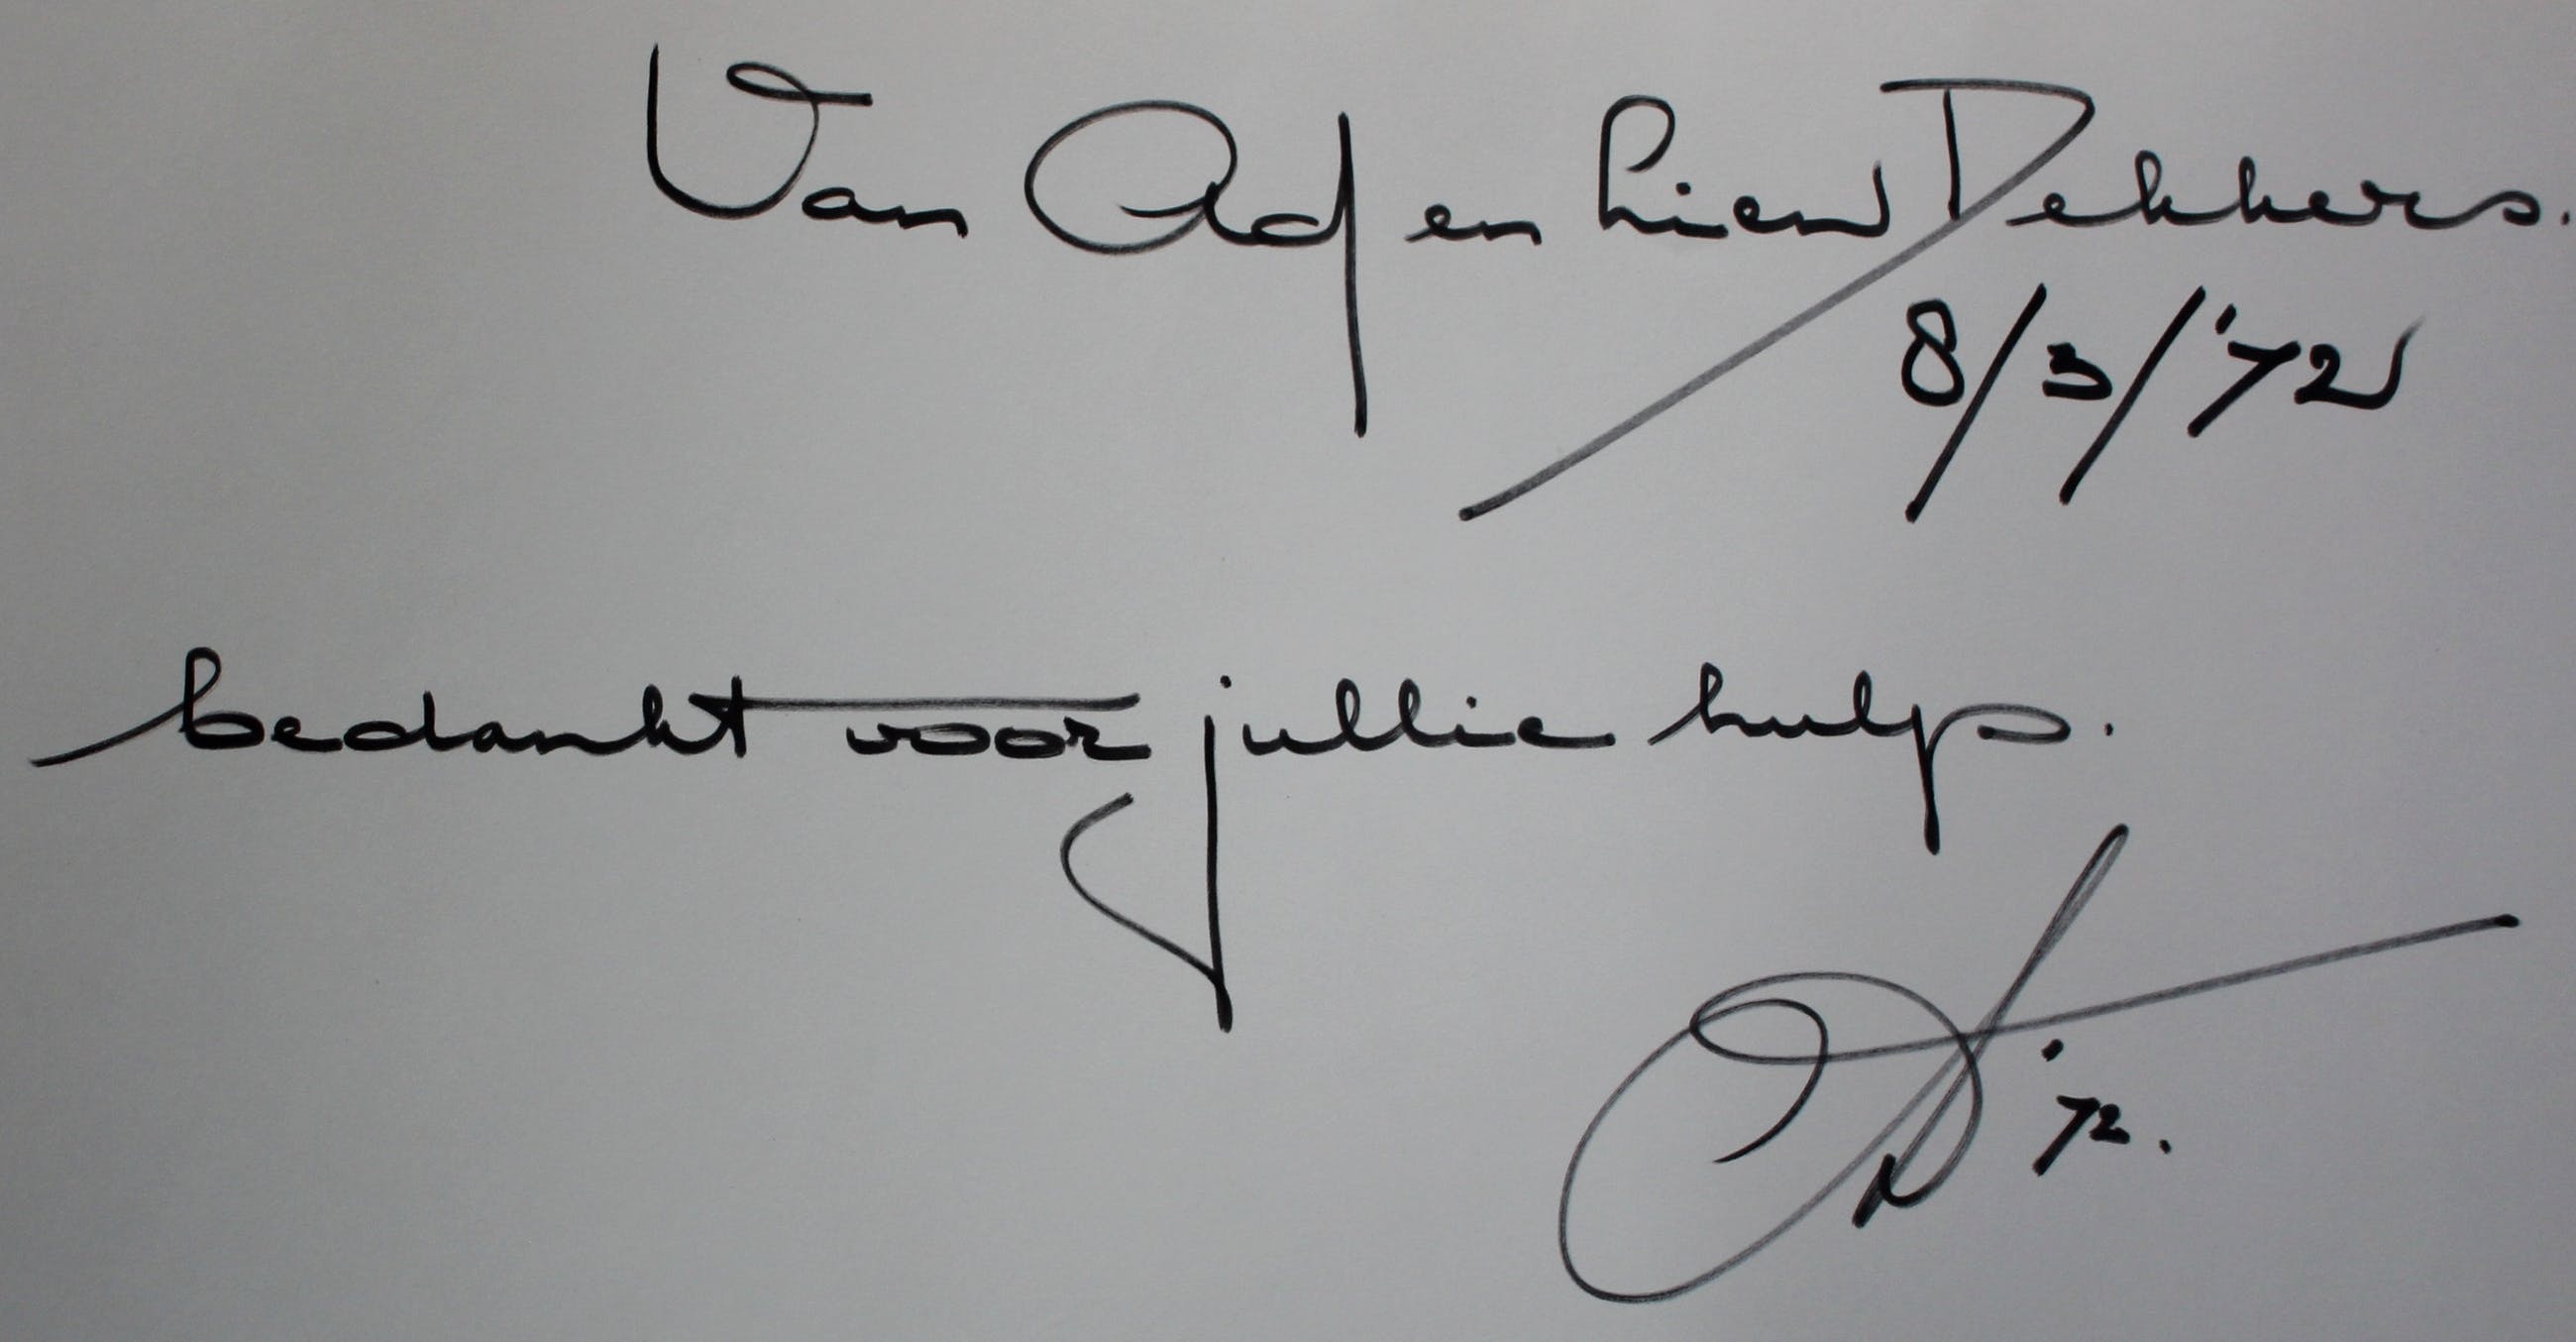 Van Ad en Lien Dekkers.
8/3/'72
bedankt voor jullie hulp.
'72.